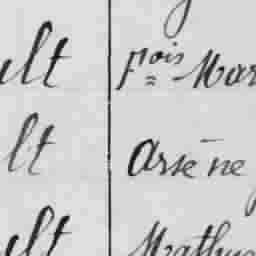 ult fois Mar
lt Arsène
ult Mathu